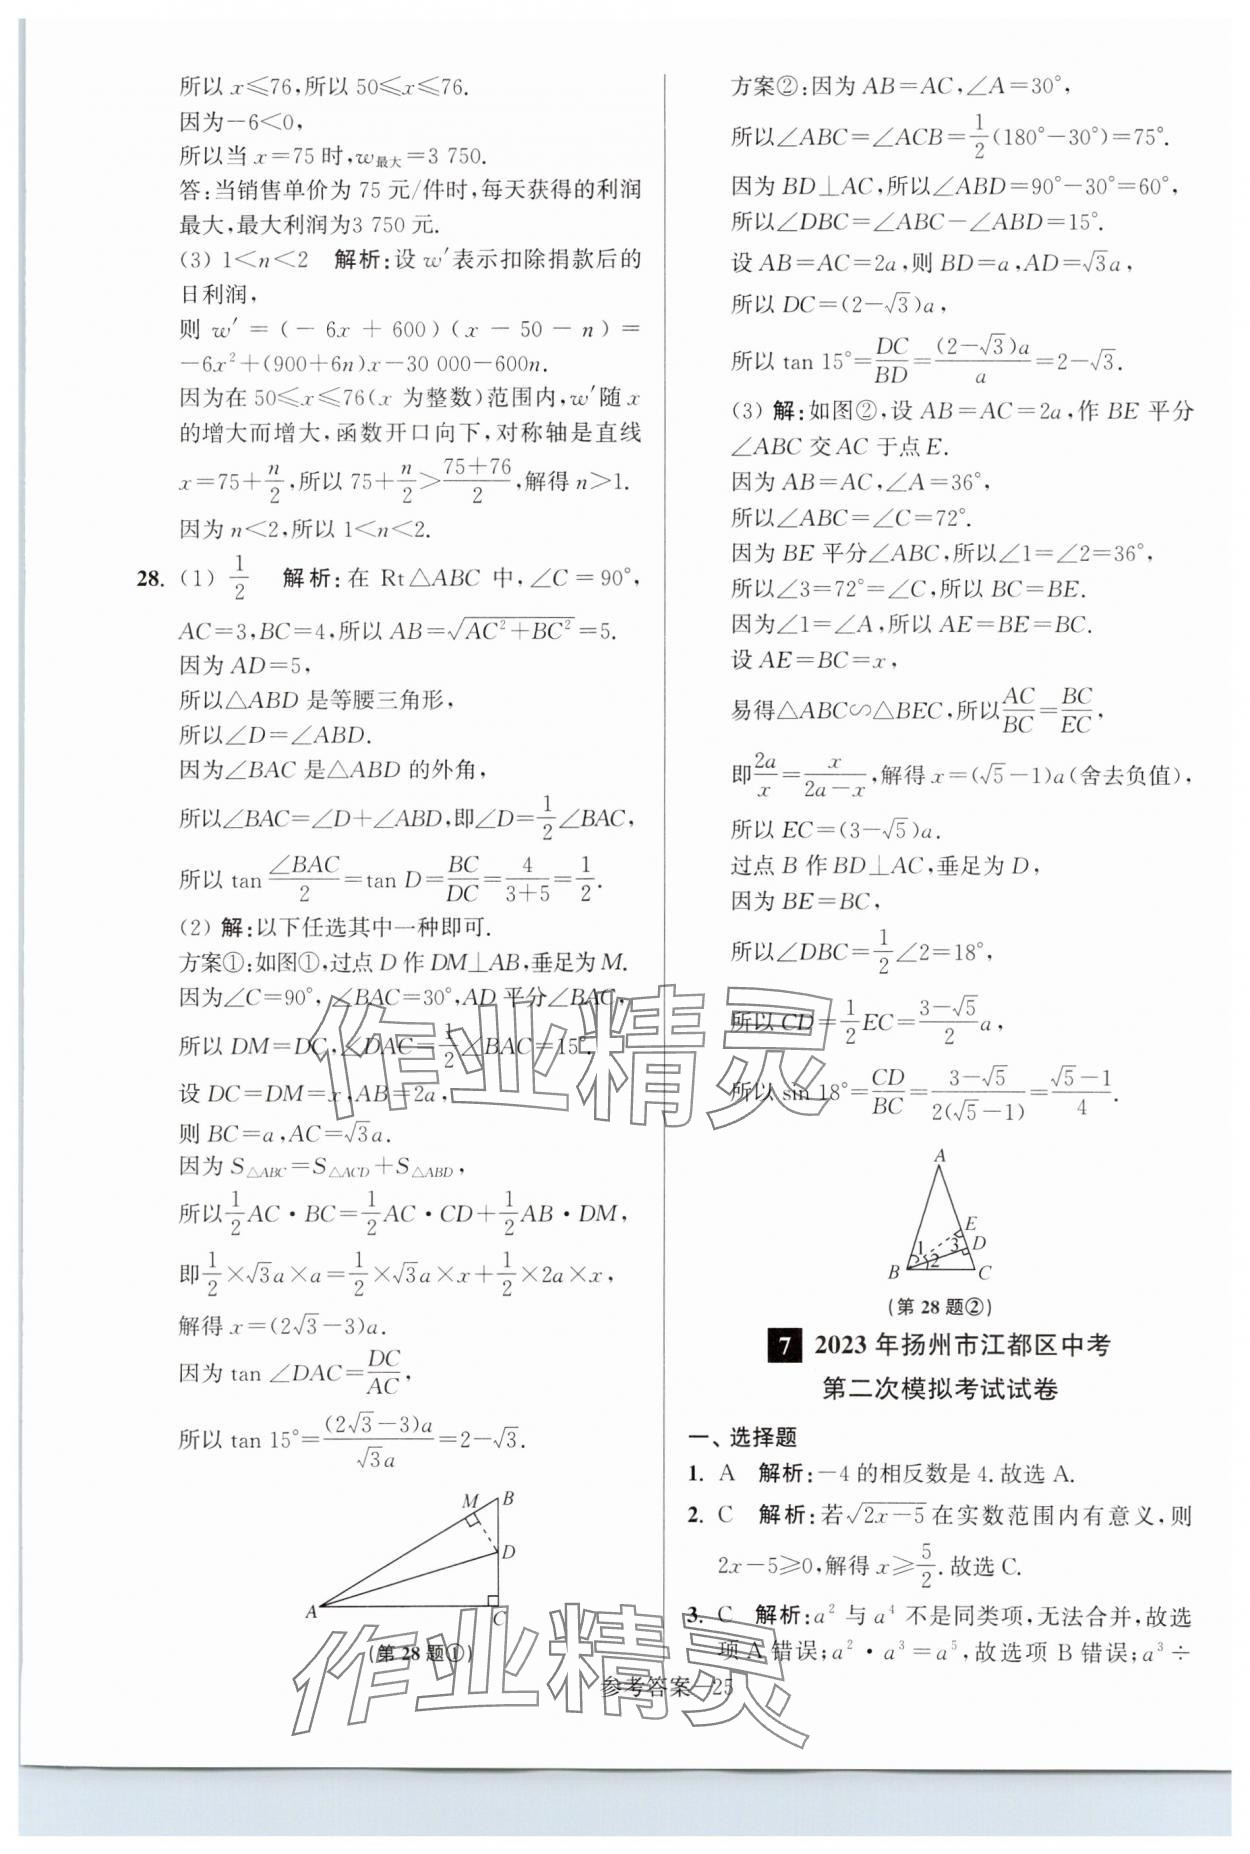 所以 x≤76,所以 50≤x≤76.
因为−6<0,
所以当 x=75 时,w最大=3 750.
答:当销售单价为 75 元/件时,每天获得的利润
最大,最大利润为3 750 元.
(3) 1<n<2 解析:设 w′表示扣除捐款后的
日利润,
则 w′=(−6x+600)(x−50−n)=
−6x²+(900+6n)x−30 000−600n.
因为在 50≤x≤76(x 为整数)范围内,w′随 x
的增大而增大,函数开口向下,对称轴是直线
x=75+n/2,所以 75+n/2>(75+76)/2,解得 n>1.
因为 n<2,所以 1<n<2.
28. (1) 1/2 解析:在 Rt△ABC 中,∠C=90°,
AC=3,BC=4,所以 AB=√(AC²+BC²)=5.
因为 AD=5,
所以△ABD 是等腰三角形,
所以∠D=∠ABD.
因为∠BAC 是△ABD 的外角,
所以∠BAC=∠D+∠ABD,即∠D=1/2∠BAC,
所以 tan ∠BAC/2=tan D=BC/DC=4/(3+5)=1/2.
(2) 解:以下任选其中一种即可.
方案①:如图①,过点 D 作 DM⊥AB,垂足为 M.
因为∠C=90°,∠BAC=30°,AD 平分∠BAC,
所以 DM=DC,∠DAC=1/2∠BAC=15°.
设 DC=DM=x,AB=2a,
则 BC=a,AC=√3a.
因为 S△ABC=S△ACD+S△ABD,
所以1/2AC·BC=1/2AC·CD+1/2AB·DM,
即1/2×√3a×a=1/2×√3a×x+1/2×2a×x,
解得 x=(2√3−3)a.
因为 tan ∠DAC=DC/AC,
所以 tan 15°=(2√3−3)a/√3a=2−√3.
M
B
D
A
C
(第 28 题①)
方案②:因为 AB=AC,∠A=30°,
所以∠ABC=∠ACB=1/2(180°−30°)=75°.
因为 BD⊥AC,所以∠ABD=90°−30°=60°,
所以∠DBC=∠ABC−∠ABD=15°.
设 AB=AC=2a,则 BD=a,AD=√3a,
所以 DC=(2−√3)a,
所以 tan 15°=DC/BD=(2−√3)a/a=2−√3.
(3) 解:如图②,设 AB=AC=2a,作 BE 平分
∠ABC 交 AC 于点 E.
因为 AB=AC,∠A=36°,
所以∠ABC=∠C=72°.
因为 BE 平分∠ABC,所以∠1=∠2=36°,
所以∠3=72°=∠C,所以 BC=BE.
因为∠1=∠A,所以 AE=BE=BC.
设 AE=BC=x,
易得△ABC∽△BEC,所以AC/BC=BC/EC,
即2a/x=x/(2a−x),解得 x=(√5−1)a(舍去负值),
所以 EC=(3−√5)a.
过点 B 作 BD⊥AC,垂足为 D,
因为 BE=BC,
所以∠DBC=1/2∠2=18°,
所以 CD=1/2EC=(3−√5)/2 a,
所以 sin 18°=CD/BC=(3−√5)/2(√5−1)=(√5−1)/4.
A
E
1
3
D
2
B
C
(第 28 题②)
7 2023 年扬州市江都区中考
第二次模拟考试试卷
一、选择题
1. A 解析:−4 的相反数是 4.故选 A.
2. C 解析:若√(2x−5) 在实数范围内有意义,则
2x−5≥0,解得 x≥5/2.故选 C.
3. C 解析:a² 与 a⁴ 不是同类项,无法合并,故选
项 A 错误;a²·a³=a⁵,故选项 B 错误;a³÷
参考答案 25
作业精灵
作业精灵